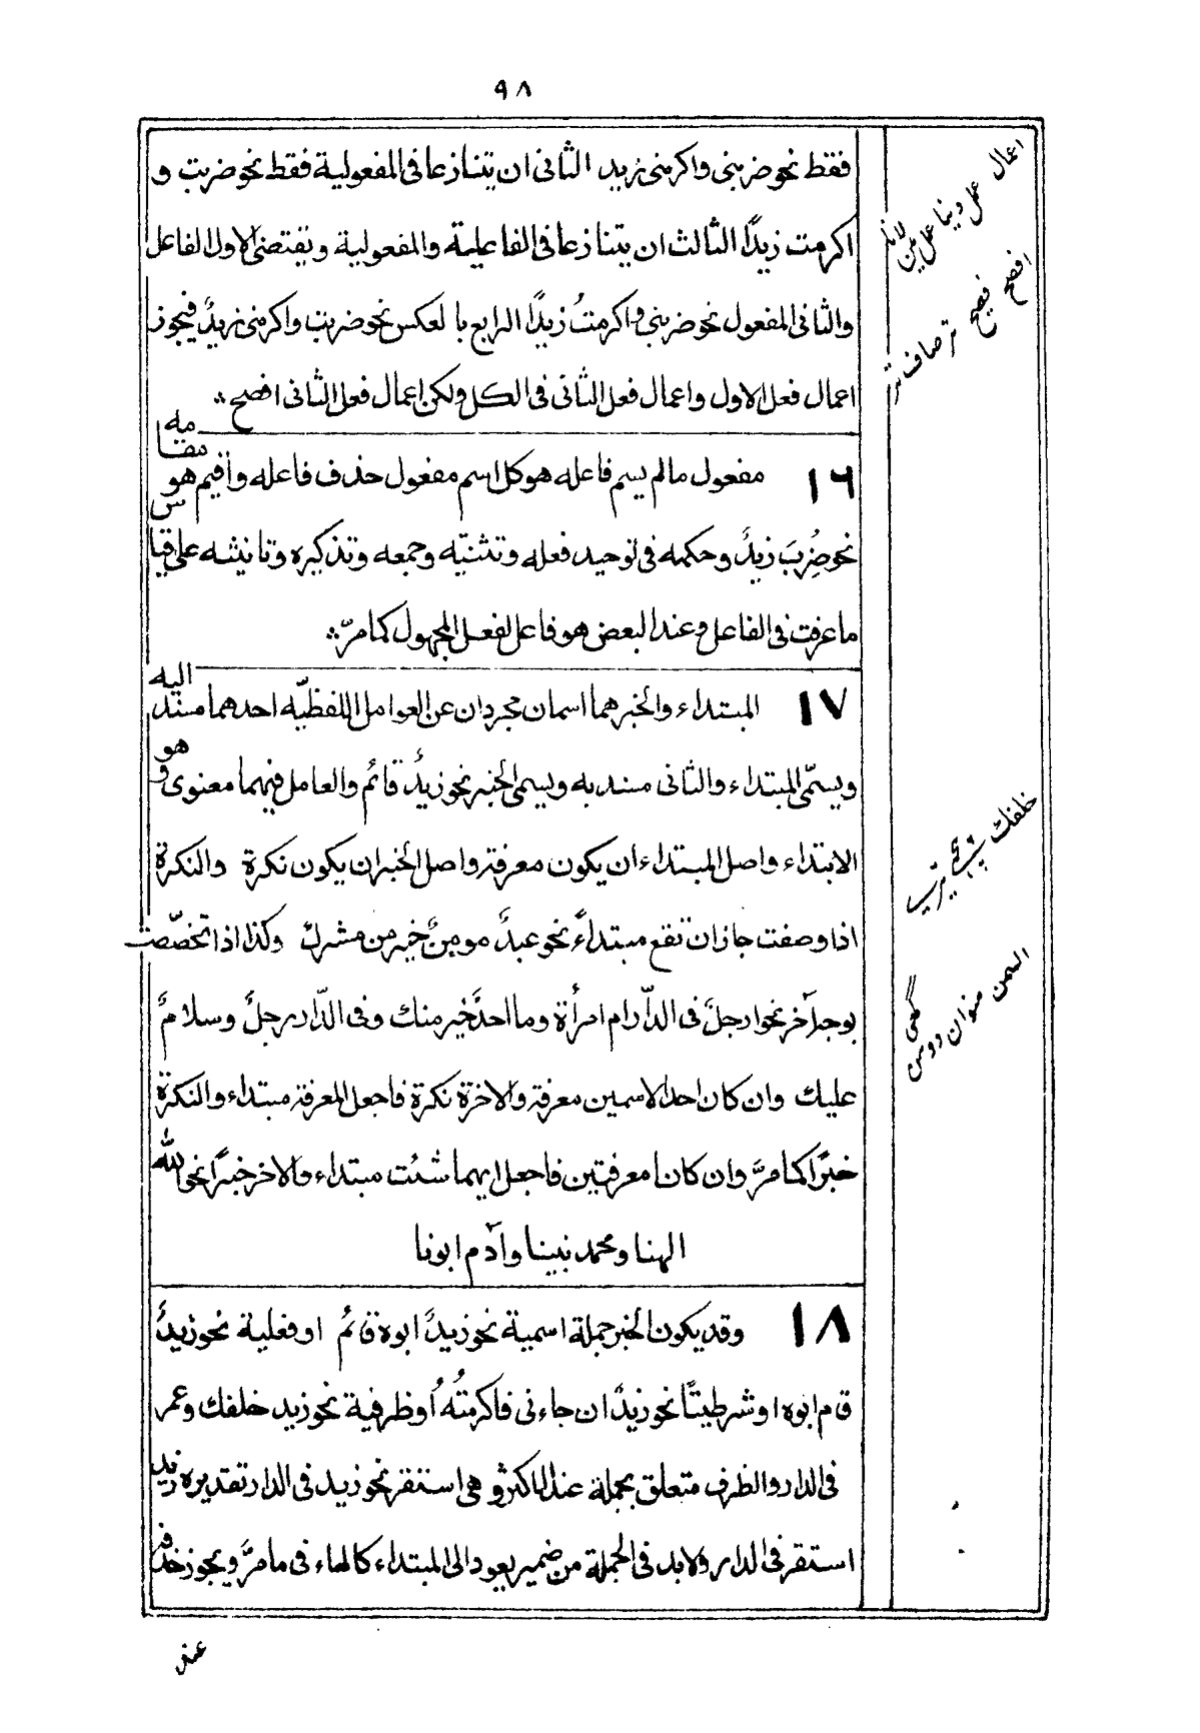 ٩٨
فقط نحو ضربنى واكرمنى زيد الثانى ان يتنازعا فى المفعولية فقط نحو ضربت و
اكرمت زيدًا الثالث ان يتنازعا فى الفاعلية والمفعولية ويقتضى الاول الفاعل
والثانى المفعول نحو ضربنى واكرمتُ زيدًا الرابع بالعكس نحو ضربت واكرمنى زيدٌ فيجوز
اعمال فعل الاول واعمال فعل الثانى فى الكل ولكن اعمال فعل الثانى افصح
١٦ مفعول مالم يسم فاعله هو كل اسم مفعول حذف فاعله وأقيم هو مقامه
نحو ضُرِبَ زيدٌ وحكمه فى توحيد فعله وتثنيّه وجمعه وتذكيره وتانيثه على قياس
ما عرفت فى الفاعل وعند البعض هو فاعل لفعل المجهول كما مرّ
١٧ المبتداء والخبر هما اسمان مجردان عن العوامل اللفظيّه احدهما مسند اليه
ويسمّى المبتداء والثانى مسند به ويسمى الخبر نحو زيدٌ قائمٌ والعامل فيهما معنوى وهو
الابتداء واصل المبتداء ان يكون معرفة واصل الخبر ان يكون نكرة والنكرة
اذا وصفت جاز ان تقع مبتداءً نحو عبدٌ مومنٌ خير من مشرك وكذا اذا تخصّصت
بوجه آخر نحو ارجلٌ فى الدّار ام امرأة وما احدٌ خير منك وفى الدّار رجلٌ وسلامٌ
عليك وان كان احد الاسمين معرفة والاخرة نكرة فاجعل المعرفة مبتداء والنكرة
خبرًا كما مرَّ وان كانا معرفتين فاجعل ايهما شئت مبتداء والاخر خبرًا نحو الله
الهنا ومحمد نبينا وآدم ابونا
١٨ وقد يكون الخبر جملة اسمية نحو زيدٌ ابوه قائمٌ او فعلية نحو زيدٌ
قام ابوه او شرطيتًا نحو زيدٌ ان جاءنى فاكرمتُه أو ظرفية نحو زيد خلفك وعمر
فى الدار والظرف متعلق بجملة عند الاكثر وهى استقر نحو زيد فى الدار تقديره زيد
استقر فى الدار ولا بد فى الجملة من ضمير يعود الى المبتداء كالهاء فى ما مرَّ ويجوز حذفه
اعمال عمل
افصح فصيح تر صاف تر
خلفك
عند